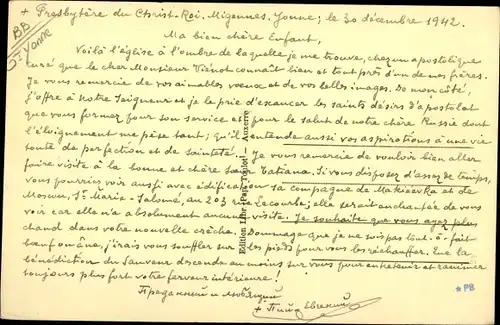 + Presbytère du Christ-Roi. Migennes. Yonne; le 30 décembre 1942.
Ma bien chère Enfant,
Voilà l'église à l'ombre de laquelle je me trouve, chez un apostolique
curé que le cher Monsieur Viénot connaît bien et tout près d'un de nes frères.
Je vous remercie de vos aimables voeux et de vos belles images. Do mon côté,
j'offre à Notre Seigneur et je le prie d'exaucer les saints désirs d'apostolat
que vous formez pour son service et pour le salut de notre chère Russie dont
l'éloignement me pèse tant; qu'il entende aussi vos aspirations à une vie
toute de perfection et de sainteté. Je vous remercie de vouloir bien aller
faire visite à la bonne et chère soeur Tatiana. Si vous disposez d'assez de temps,
vous pourriez voir aussi avec édification sa compagne de Makiéevka et de
Moscou, Sr. Marie-Salomé, au 203 rue Lecourbe; elle serait enchantée de vous
voir car elle n'a absolument aucune visite. Je souhaite que vous ayez plus
chaud dans votre nouvelle crèche. Dommage que je ne sois pas tout-à-fait
boeuf on âne, j'irais vous souffler sur les pieds pour vous les réchauffer. Que la
bénédiction du Sauveur descende au moins sur vous pour entretenir et ranimer
toujours plus fort votre ferveur intérieure!
Преданный и любящий
+ Пий Евгений
BB
St Yonne
Edition Libr-Pap. - Auxerre
*PB